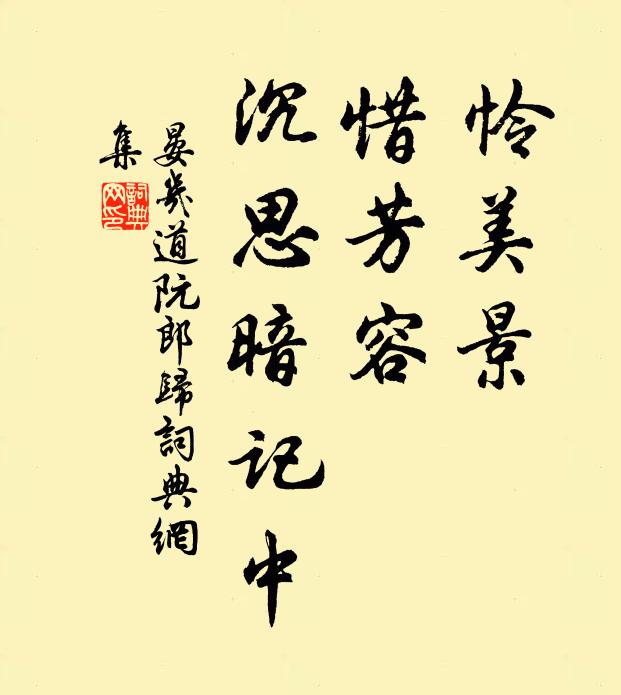 怜美景
惜芳容
沉思暗记中
晏几道阮郎歸詞典網
集
詞典
网印